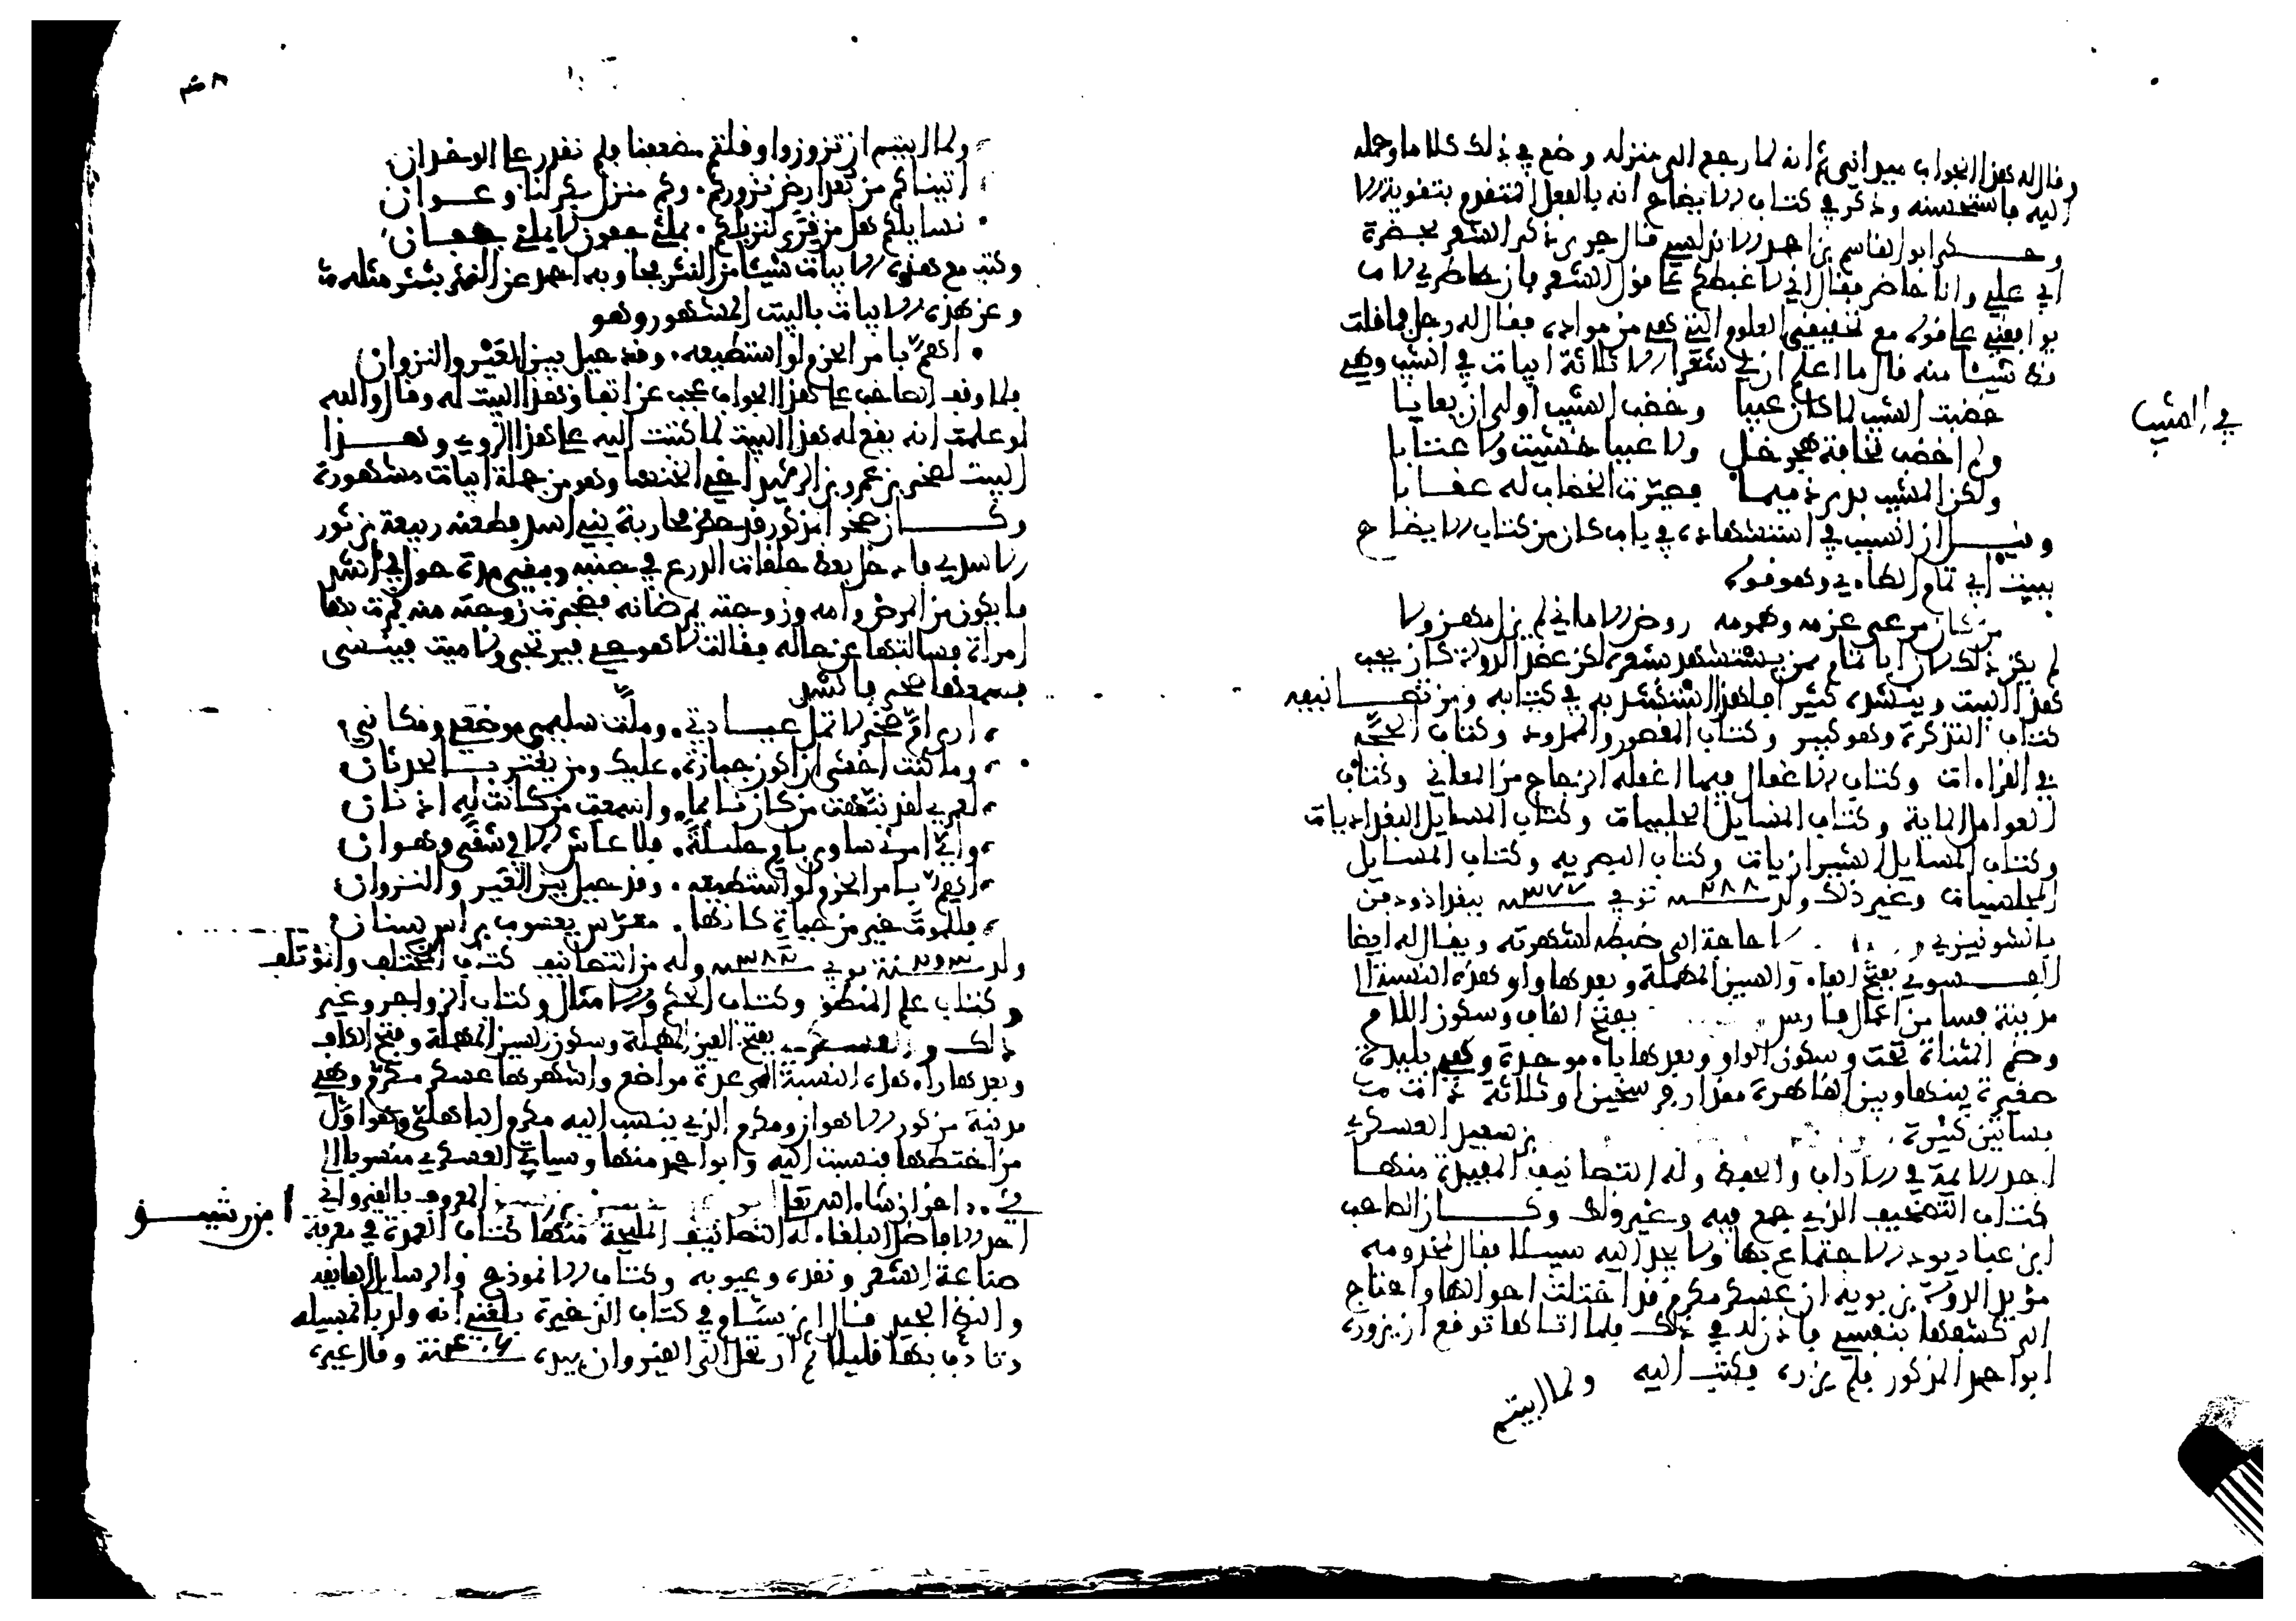 وقال له هذا الجواب ميداني ثم انه لما رجع الى منزله وضع في ذلك كلاما وحمله
اليه فاستحسنه وذكر في كتاب الايضاح انه بالفعل المتقدم بتقوية الا
وحكى ابو القاسم بن احمد الاندلسي قال جرى ذكر الشعر بحضرة
ابي علي وانا حاضر فقال اني لاغبطكم على قول الشعر فان خاطري لا
يوافقني على قوله مع تحقيقي العلوم التي هي من مواده فقال له رجل فما قلت
قط شيئا منه قال ما اعلم ان لي شعرا الا ثلاثة ابيات في الشيب وهي
في المشيب
خضبت الشيب لما كان عيبا وخضب الشيب اولى ان يعابا
ولم اخضب مخافة هجر خل ولا عيبا خشيت ولا عتابا
ولكن المشيب بدا ذميما فصيرت الخضاب له عقابا
وقيل ان السبب في استشهاده في باب كان من كتاب الايضاح
ببيت ابي تمام الطاءي وهو قوله
من كان مرعى عزمه وهمومه روض الاماني لم يزل مهزولا
لم يكن ذلك لان ابا تمام ممن يستشهد بشعره لكن عضد الدولة كان يحب
هذا البيت وينشده كثيرا فلهذا استشهد به في كتابه ومن تصانيفه
كتاب التذكرة وهو كبير وكتاب المقصور والممدود وكتاب الحجة
في القراءات وكتاب الاغفال فيما اغفله الزجاج من المعاني وكتاب
العوامل الماية وكتاب المسايل الحلبيات وكتاب المسايل البغداديات
وكتاب المسايل الشيرازيات وكتاب البصرية وكتاب المسايل
المجلسيات وغير ذلك ولد ٢٨٨ توفي ٣٧٧ ببغداد ودفن
بالشونيزي لا حاجة الى ضبطه لشهرته ويقال له ايضا
الفسوي بفتح الفاء والسين المهملة وبعدها واو هذه النسبة الى
مدينة فسا من اعمال فارس بفتح القاف وسكون اللام
وضم المثناة تحت وسكون الواو وبعدها باء موحدة وهي بليدة
صغيرة بينها وبين القاهرة مقدار فرسخين او ثلاثة ذات
بساتين كثيرة بن سعيد العسكري
احد الايمة في الاداب والحفظ وله التصانيف المفيدة منها
كتاب التصحيف الذي جمع فيه وغير ذلك وكان الصاحب
ابن عباد يود الاجتماع به ولا يجد اليه سبيلا فقال لمخدومه
مؤيد الدولة بن بويه ان عسكر مكرم قد اختلت احوالها واحتاج
الى كشفها بنفسي فاذن له في ذلك فلما اتاها توقع ان يزوره
ابو احمد المذكور فلم يزره فكتب اليه
ولما ابيتم
ولما ابيتم ان تزوروا وقلتم ضعفنا فلم نقدر على الوخدان
اتيناكم من بعد ارض نزوركم وكم منزل بكر لنا وعوان
نسايلكم هل من قرى لنزيلكم بملئ جفون لا بملئ جفان
وكتب مع هذه الابيات شيئا من النثر فجاوبه احمد عن النثر بنثر مثله
وعن هذه الابيات بالبيت المشهور وهو
اهم بامر الحزم لو استطيعه وقد حيل بين العير والنزوان
فلما وقف الصاحب على هذا الجواب عجب من اتفاق هذا البيت له وقال والله
لو علمت انه يقع له هذا البيت لما كتبت اليه على هذا الروي وهذا
البيت لصخر بن عمرو بن الرشيد اخي الخنساء وهو من جملة ابيات مشهورة
وكان صخر المذكور قد حضر محاربة بني اسد فطعنه ربيعة بن ثور
الاسدي فادخل بعض حلقات الدرع في جنبه وبقي مدة حول في اشد
ما يكون من المرض وامه وزوجته يمرضانه فضجرت زوجته منه فمرت بها
امراة فسالتها عن حاله فقالت لا هو حي فيرتجى ولا ميت فينسى
فسمعها صخر فانشد
ارى ام صخر لا تمل عيادتي وملت سليمى موضعي ومكاني
وما كنت اخشى ان اكون جنازة عليك ومن يغتر بالحدثان
لعمري لقد نبهت من كان نايما واسمعت من كانت له اذنان
واي امرئ ساوى بام حليلة فلا عاش الا في شقى وهوان
اهم بامر الحزم لو استطيعه وقد حيل بين العير والنزوان
فللموت خير من حياة كانها معرس يعسوب براس سنان
ولد ٢٩٣ توفي ٣٨٢ وله من التصانيف كتاب المختلف والمؤتلف
وكتاب علم المنطق وكتاب الحكم والامثال وكتاب الزواجر وغير
ذلك والعسكري بفتح العين المهملة وسكون السين المهملة وفتح الكاف
وبعدها راء هذه النسبة الى عدة مواضع واشهرها عسكر مكرم وهي
مدينة من كور الاهواز ومكرم الذي ينسب اليه مكرم الباهلي وهو اول
من اختطها فنسبت اليه وابو احمد منها وسياتي العسكري منسوبا الى
المعروف بالقيرواني
ابن رشيق
احد الافاضل البلغاء له التصانيف المليحة منها كتاب العمدة في معرفة
صناعة الشعر ونقده وعيوبه وكتاب الانموذج والرسايل الفايقة
والنظم الجيد قال ابن بسام في كتاب الذخيرة بلغني انه ولد بالمسيلة
وتادب بها قليلا ثم ارتحل الى القيروان سنة ٤٠٦ وقال غيره